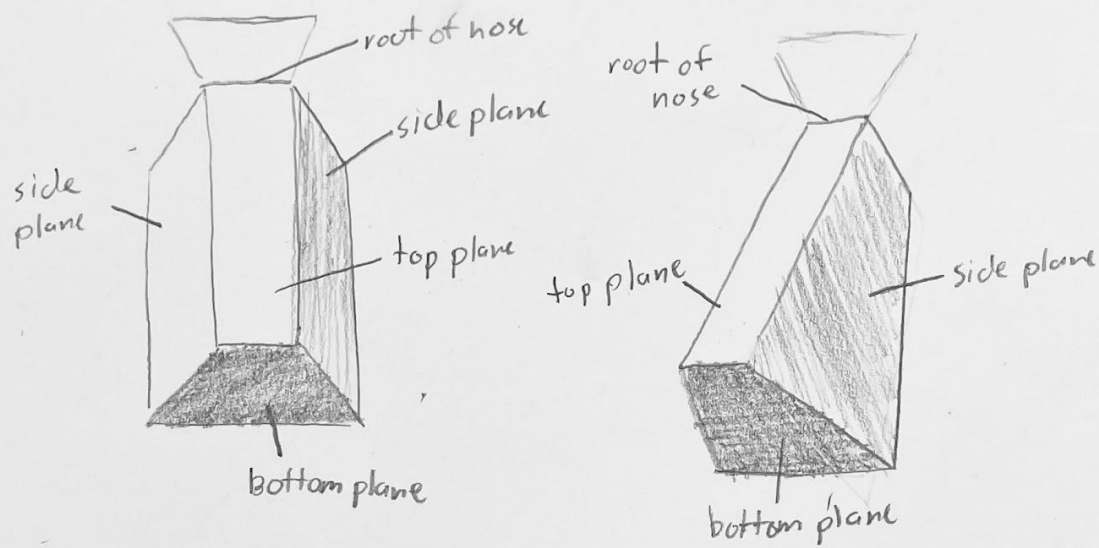 root of nose
side plane
side
plane
top plane
bottom plane
root of
nose
top plane
side plane
bottom plane